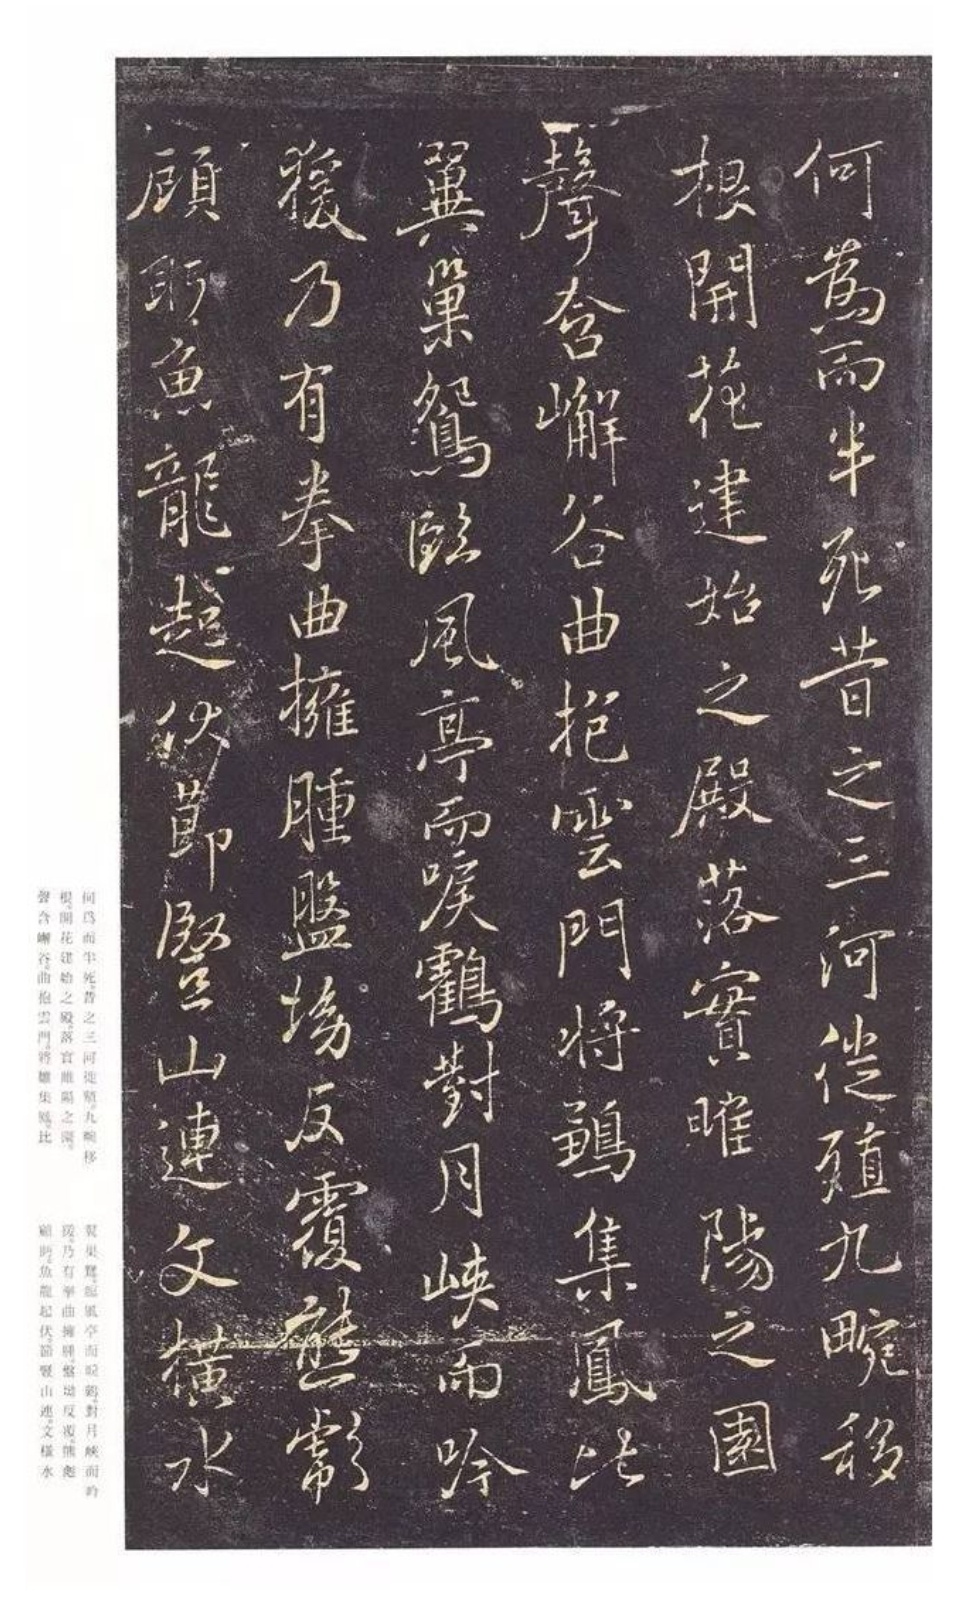 何為而半死昔之三河徙殖九畹移
根開花建始之殿落實睢陽之園
聲含嶰谷曲抱雲門將鶵集鳳比
翼巢鴛臨風亭而唳鶴對月峽而吟
猨乃有拳曲擁腫盤坳反覆熊彪
顧盼魚龍起伏節豎山連文橫水
何爲而半死。昔之三河徙殖。九畹移
根。開花建始之殿。落實睢陽之園。
聲含嶰谷。曲抱雲門。將雛集鳳。比
翼巢鴛。臨風亭而唳鶴。對月峽而吟
猨。乃有拳曲擁腫。盤坳反覆。熊彪
顧盼。魚龍起伏。節豎山連。文橫水